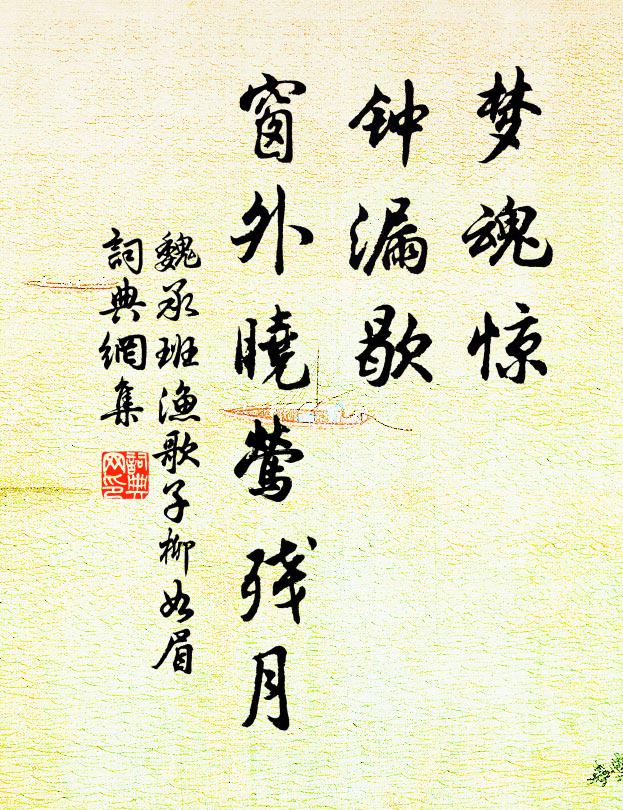 梦魂惊
钟漏歇
窗外晓莺残月
魏承班渔歌子柳如眉
詞典網集
詞典
网印